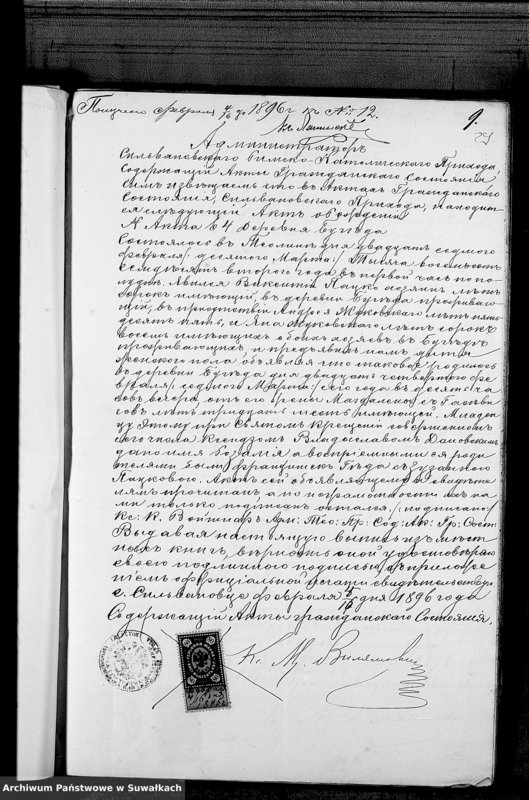 Получено Февраля 4/16 дня 1896 г. къ № 12.
9.
Администраторъ
Сильвановскаго Римско-Католическаго Прихода
Содержащій Акты Гражданскаго Состоянія
симъ извѣщаетъ что въ Актахъ Гражданскаго
Состоянія, Сильвановскаго Прихода, находит
ся слѣдующій Актъ о рожденіи
№ Акта 64 Деревня
Состоялось въ дня двадцать седьмого
февраля /десятаго Марта/ Тысяча восемьсотъ
семдесятъ второго года въ первой часъ по по
лудни. Явился Викентій Пацко хозяинъ лѣтъ
сорокъ имѣющій, въ деревни проживаю
щій, въ присутствіи Андрея Жуковскаго лѣтъ пять
десятъ пять, и Яна Жуковскаго лѣтъ сорокъ
восемъ имѣющихъ обоихъ хозяевъ въ
проживающихъ и предъявилъ намъ дитя
женскаго пола объявляя что таковое родилось
въ деревни дня двадцать четвертаго фе
враля /седьмого Марта/ сего года въ десять ча
совъ вечера, отъ его жены Магдалены съ
лѣтъ тридцать шесть имѣющей. Младен
цу этому при Святомъ крещеніи совершенномъ
сего числа Ксендзомъ Владиславомъ
дано имя а воспріемниками ея роди
телями были Францишекъ съ
Пацкового. Актъ сей объявляющему и свидѣте
лямъ прочитанъ, а по неграмотности ихъ на
ми только подписанъ остался. /подписано/
Кс: К. Войшнаръ Адм: Мѣс: Пр: Сод: Ак: Гр: Сост:
Выдавая настоящую выпись изъ мѣст
ныхъ книгъ, вѣрность оной удостовѣряю
своею подлинною подписью съ приложе
ніемъ оффиціальной печати свидѣтельствую
с. Сильвановце Февраля 4/16 дня 1896 года
Содержащій Акты гражданскаго Состоянія.
Archiwum Państwowe w Suwałkach